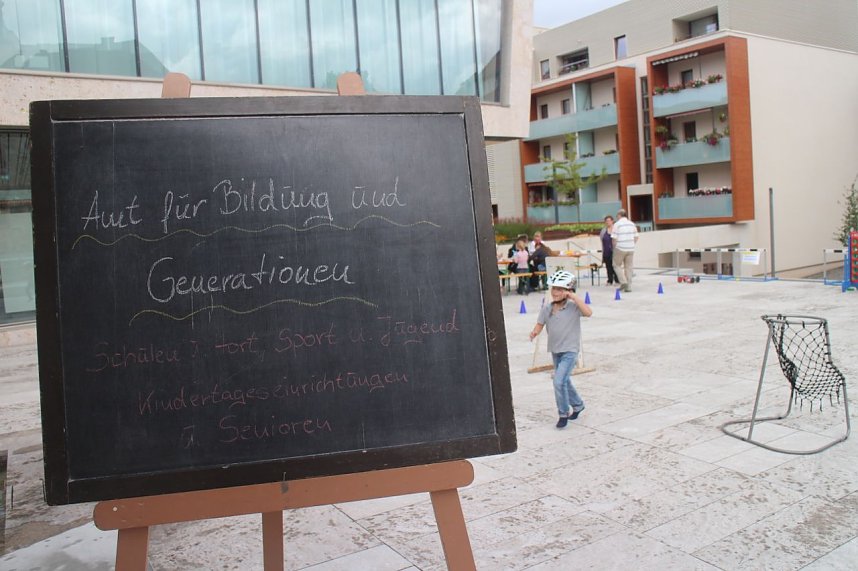 Amt für Bildung und
Generationen
Schulen u. Hort, Sport u. Jugend
Kindertageseinrichtungen
u. Senioren